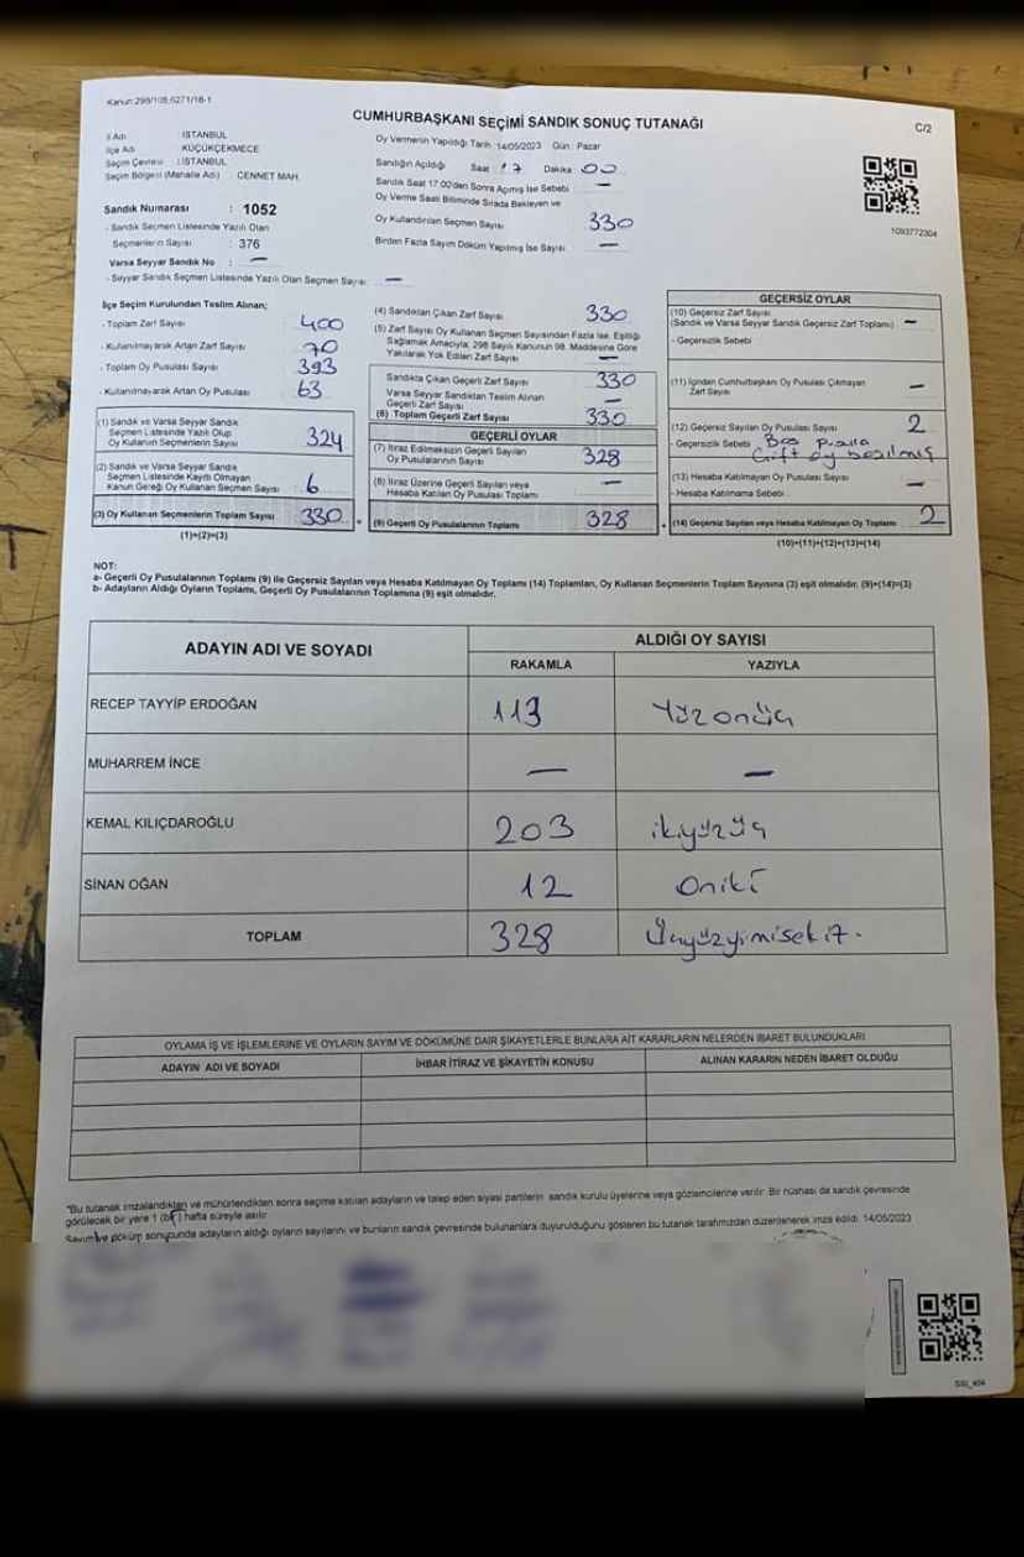 Kanun: 298/105,6271/18-1
CUMHURBAŞKANI SEÇİMİ SANDIK SONUÇ TUTANAĞI
C/2
İl Adı : İSTANBUL
İlçe Adı : KÜÇÜKÇEKMECE
Seçim Çevresi : İSTANBUL
Seçim Bölgesi (Mahalle Adı) : CENNET MAH.
Sandık Numarası : 1052
- Sandık Seçmen Listesinde Yazılı Olan
Seçmenlerin Sayısı : 376
Varsa Seyyar Sandık No : —
- Seyyar Sandık Seçmen Listesinde Yazılı Olan Seçmen Sayısı —
Oy Vermenin Yapıldığı Tarih :14/05/2023 Gün : Pazar
Sandığın Açıldığı Saat : 17 Dakika : 00
Sandık Saat 17:00'den Sonra Açılmış İse Sebebi —
Oy Verme Saati Bitiminde Sırada Bekleyen ve
Oy Kullandırılan Seçmen Sayısı 330
Birden Fazla Sayım Döküm Yapılmış İse Sayısı —
1093772304
İlçe Seçim Kurulundan Teslim Alınan;
- Toplam Zarf Sayısı 400
- Kullanılmayarak Artan Zarf Sayısı 70
- Toplam Oy Pusulası Sayısı 393
- Kullanılmayarak Artan Oy Pusulası 63
(1) Sandık ve Varsa Seyyar Sandık
Seçmen Listesinde Yazılı Olup
Oy Kullanan Seçmenlerin Sayısı 324
(2) Sandık ve Varsa Seyyar Sandık
Seçmen Listesinde Kayıtlı Olmayan
Kanun Gereği Oy Kullanan Seçmen Sayısı 6
(3) Oy Kullanan Seçmenlerin Toplam Sayısı 330
(1)+(2)=(3)
(4) Sandıktan Çıkan Zarf Sayısı 330
(5) Zarf Sayısı Oy Kullanan Seçmen Sayısından Fazla İse, Eşitliği
Sağlamak Amacıyla; 298 Sayılı Kanunun 98. Maddesine Göre
Yakılarak Yok Edilen Zarf Sayısı —
Sandıkta Çıkan Geçerli Zarf Sayısı 330
Varsa Seyyar Sandıktan Teslim Alınan
Geçerli Zarf Sayısı —
(6) Toplam Geçerli Zarf Sayısı 330
GEÇERLİ OYLAR
(7) İtiraz Edilmeksizin Geçerli Sayılan
Oy Pusulalarının Sayısı 328
(8) İtiraz Üzerine Geçerli Sayılan veya
Hesaba Katılan Oy Pusulası Toplamı —
(9) Geçerli Oy Pusulalarının Toplamı 328
GEÇERSİZ OYLAR
(10) Geçersiz Zarf Sayısı
(Sandık ve Varsa Seyyar Sandık Geçersiz Zarf Toplamı) —
- Geçersizlik Sebebi
(11) İçinden Cumhurbaşkanı Oy Pusulası Çıkmayan
Zarf Sayısı —
(12) Geçersiz Sayılan Oy Pusulası Sayısı 2
- Geçersizlik Sebebi Boş Pusula
Çift oy basılmış
(13) Hesaba Katılmayan Oy Pusulası Sayısı —
- Hesaba Katılmama Sebebi
(14) Geçersiz Sayılan veya Hesaba Katılmayan Oy Toplamı 2
(10)+(11)+(12)+(13)=(14)
NOT:
a- Geçerli Oy Pusulalarının Toplamı (9) ile Geçersiz Sayılan veya Hesaba Katılmayan Oy Toplamı (14) Toplamları, Oy Kullanan Seçmenlerin Toplam Sayısına (3) eşit olmalıdır. (9)+(14)=(3)
b- Adayların Aldığı Oyların Toplamı, Geçerli Oy Pusulalarının Toplamına (9) eşit olmalıdır.
ADAYIN ADI VE SOYADI
ALDIĞI OY SAYISI
RAKAMLA YAZIYLA
RECEP TAYYİP ERDOĞAN 113 Yüzonüç
MUHARREM İNCE — —
KEMAL KILIÇDAROĞLU 203 ikiyüzüç
SİNAN OĞAN 12 Oniki
TOPLAM 328 Üçyüzyimisekiz.
OYLAMA İŞ VE İŞLEMLERİNE VE OYLARIN SAYIM VE DÖKÜMÜNE DAİR ŞİKAYETLERLE BUNLARA AİT KARARLARIN NELERDEN İBARET BULUNDUKLARI
ADAYIN ADI VE SOYADI
İHBAR İTİRAZ VE ŞİKAYETİN KONUSU
ALINAN KARARIN NEDEN İBARET OLDUĞU
"Bu tutanak imzalandıktan ve mühürlendikten sonra seçime katılan adayların ve talep eden siyasi partilerin sandık kurulu üyelerine veya gözlemcilerine verilir. Bir nüshası da sandık çevresinde
görülecek bir yere 1 (bir) hafta süreyle asılır.
Sayım ve döküm sonucunda adayların aldığı oyların sayılarını ve bunların sandık çevresinde bulunanlara duyurulduğunu gösteren bu tutanak tarafımızdan düzenlenerek imza edildi. 14/05/2023